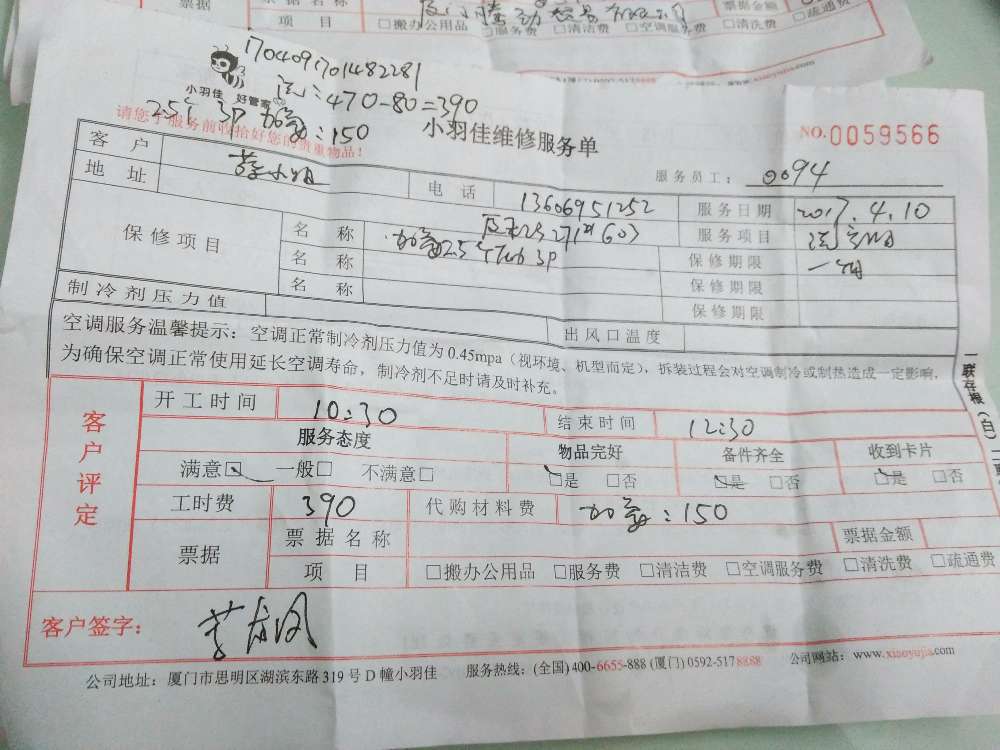 票据
票据金额
项 目 □搬办公用品 □服务费 □清洁费 □空调服务费 □清洗费 □疏通费
1704091701482281
小羽佳 好管家
洗:470-80=390
25个 3P 加氟:150
请您于服务前收拾好您的贵重物品!
小羽佳维修服务单
NO.0059566
服务员工: 0094
客 户
小姐
电 话 13606951252
服务日期 2017.4.10
地 址
271#603
服务项目 洗空调
保修项目
名 称 加氟25个 3P
保修期限 一个月
名 称
保修期限
名 称
保修期限
制冷剂压力值
出风口温度
空调服务温馨提示:空调正常制冷剂压力值为0.45mpa(视环境、机型而定),拆装过程会对空调制冷或制热造成一定影响,
为确保空调正常使用延长空调寿命,制冷剂不足时请及时补充。
一联存根(白)
客户评定
开工时间 10:30
结束时间 12:30
服务态度 物品完好 备件齐全 收到卡片
满意□ 一般□ 不满意□ □是 □否 □是 □否 □是 □否
工时费 390 代购材料费 加氟:150
票据
票据名称
票据金额
项 目 □搬办公用品 □服务费 □清洁费 □空调服务费 □清洗费 □疏通费
客户签字:
公司地址:厦门市思明区湖滨东路319号D幢小羽佳 服务热线:(全国)400-6655-888 (厦门)0592-5178888 公司网站:www.xiaoyujia.com